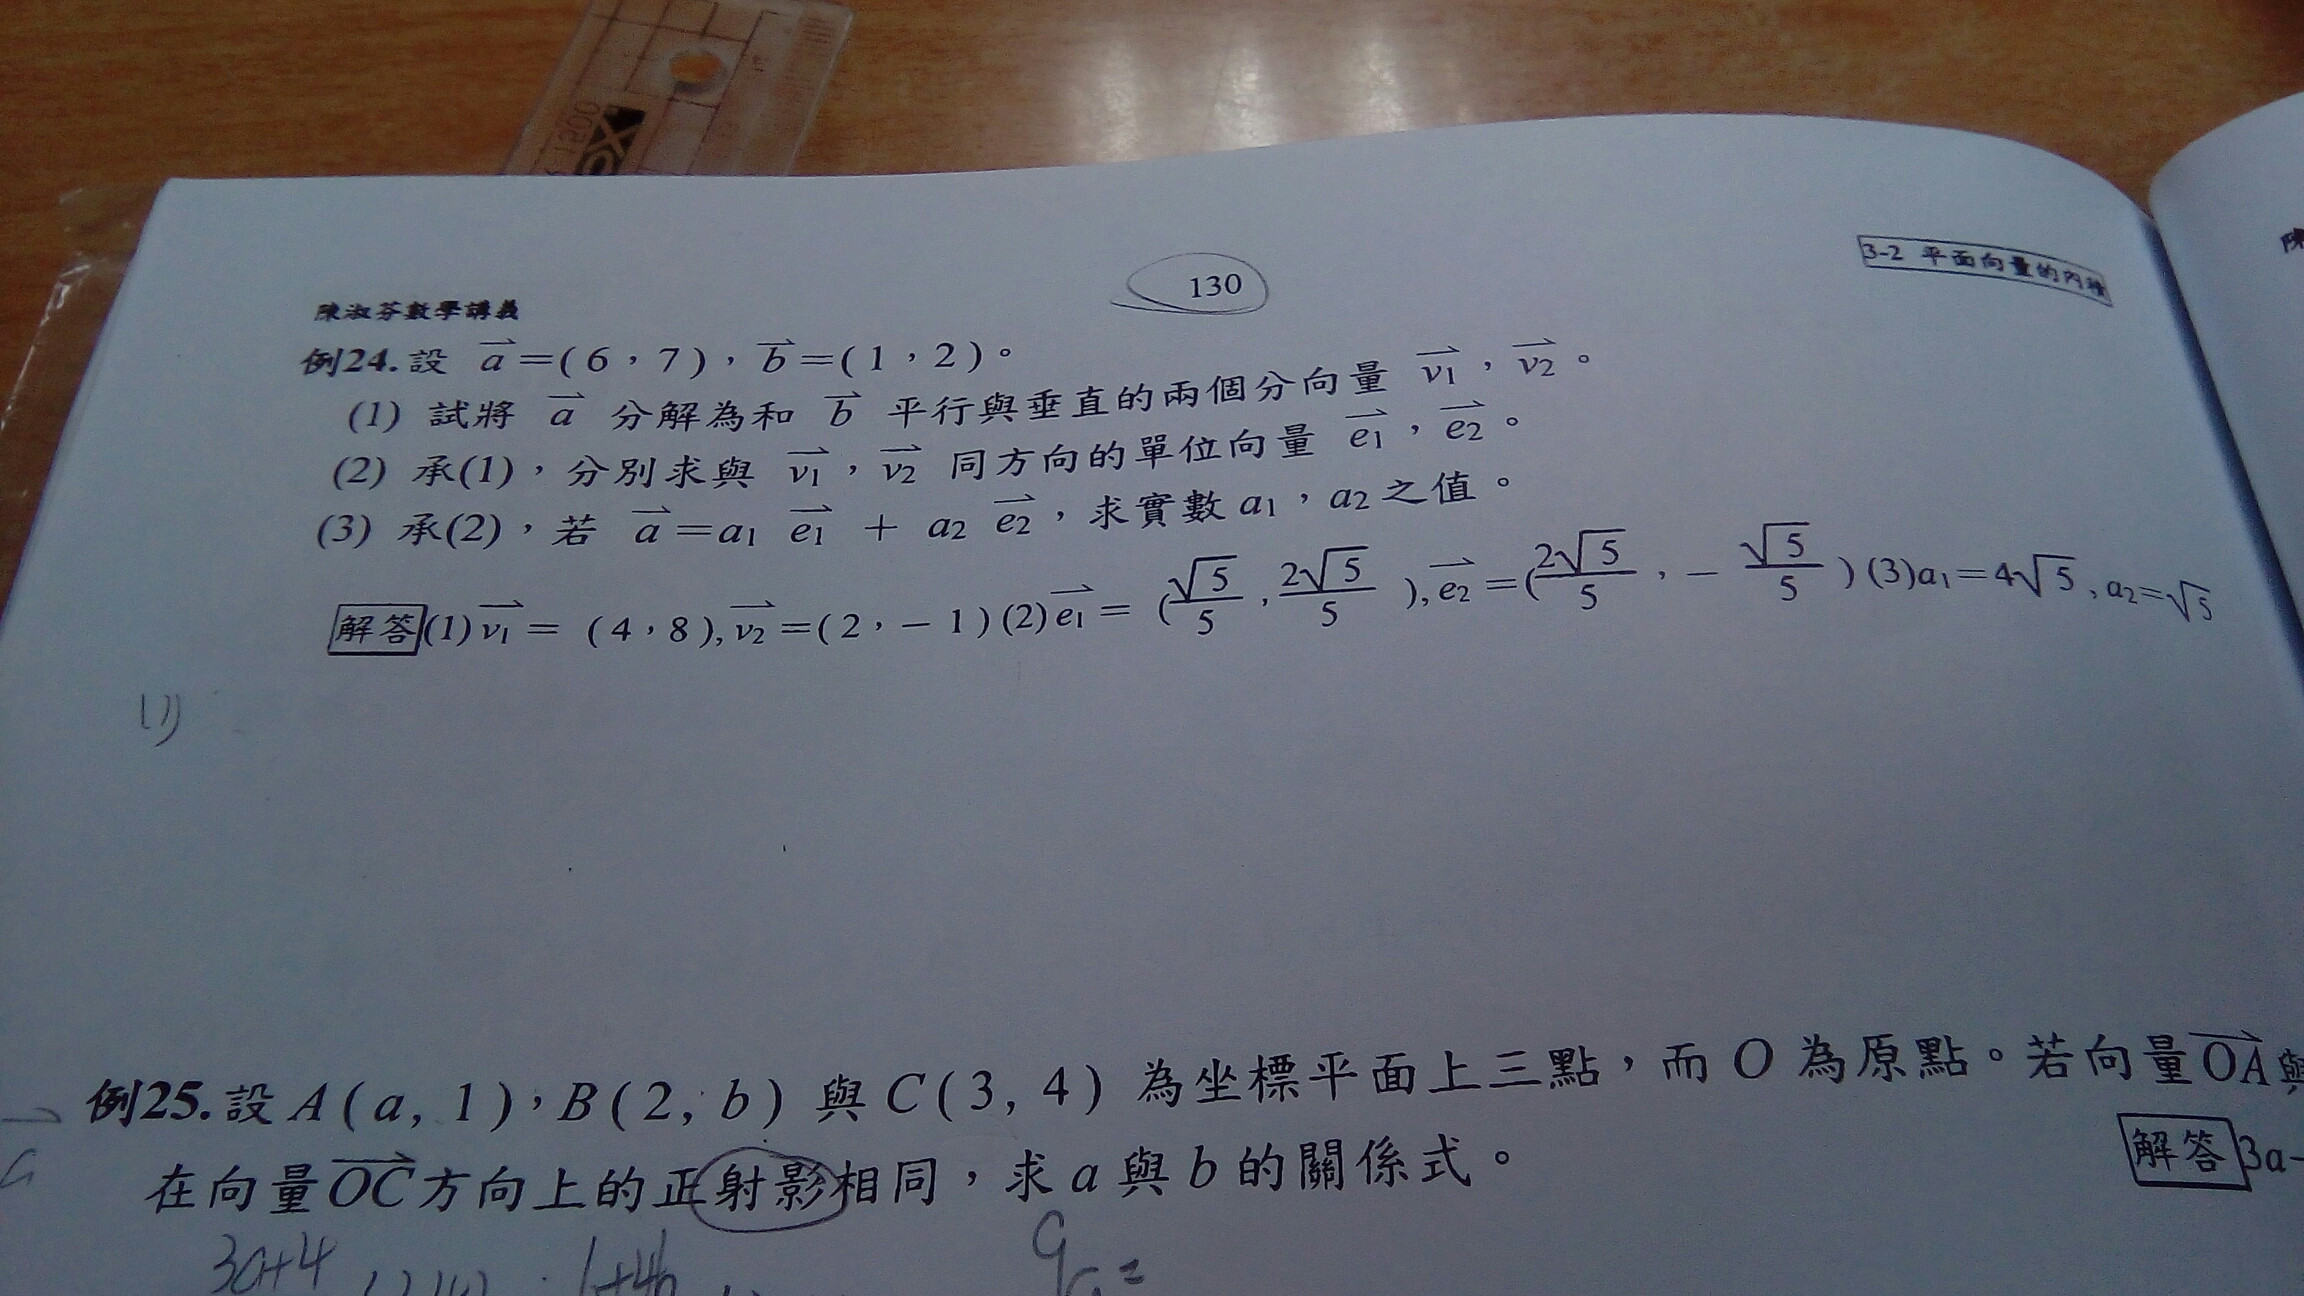 1500
130
3-2 平面向量的內積
陳淑芬數學講義
例24. 設 a⃗=(6，7)，b⃗=(1，2)。
(1) 試將 a⃗ 分解為和 b⃗ 平行與垂直的兩個分向量 v₁⃗，v₂⃗。
(2) 承(1)，分別求與 v₁⃗，v₂⃗ 同方向的單位向量 e₁⃗，e₂⃗。
(3) 承(2)，若 a⃗=a₁ e₁⃗ + a₂ e₂⃗，求實數 a₁，a₂之值。
解答 (1) v₁⃗ = (4，8), v₂⃗ =(2，－1) (2) e₁⃗ = (√5/5, 2√5/5), e₂⃗ =(2√5/5，－√5/5) (3)a₁=4√5, a₂=√5
(1)
例25. 設 A(a, 1)，B(2, b) 與 C(3, 4) 為坐標平面上三點，而 O 為原點。若向量OA⃗與
在向量OC⃗方向上的正射影相同，求 a 與 b 的關係式。
解答 3a-
3a+4